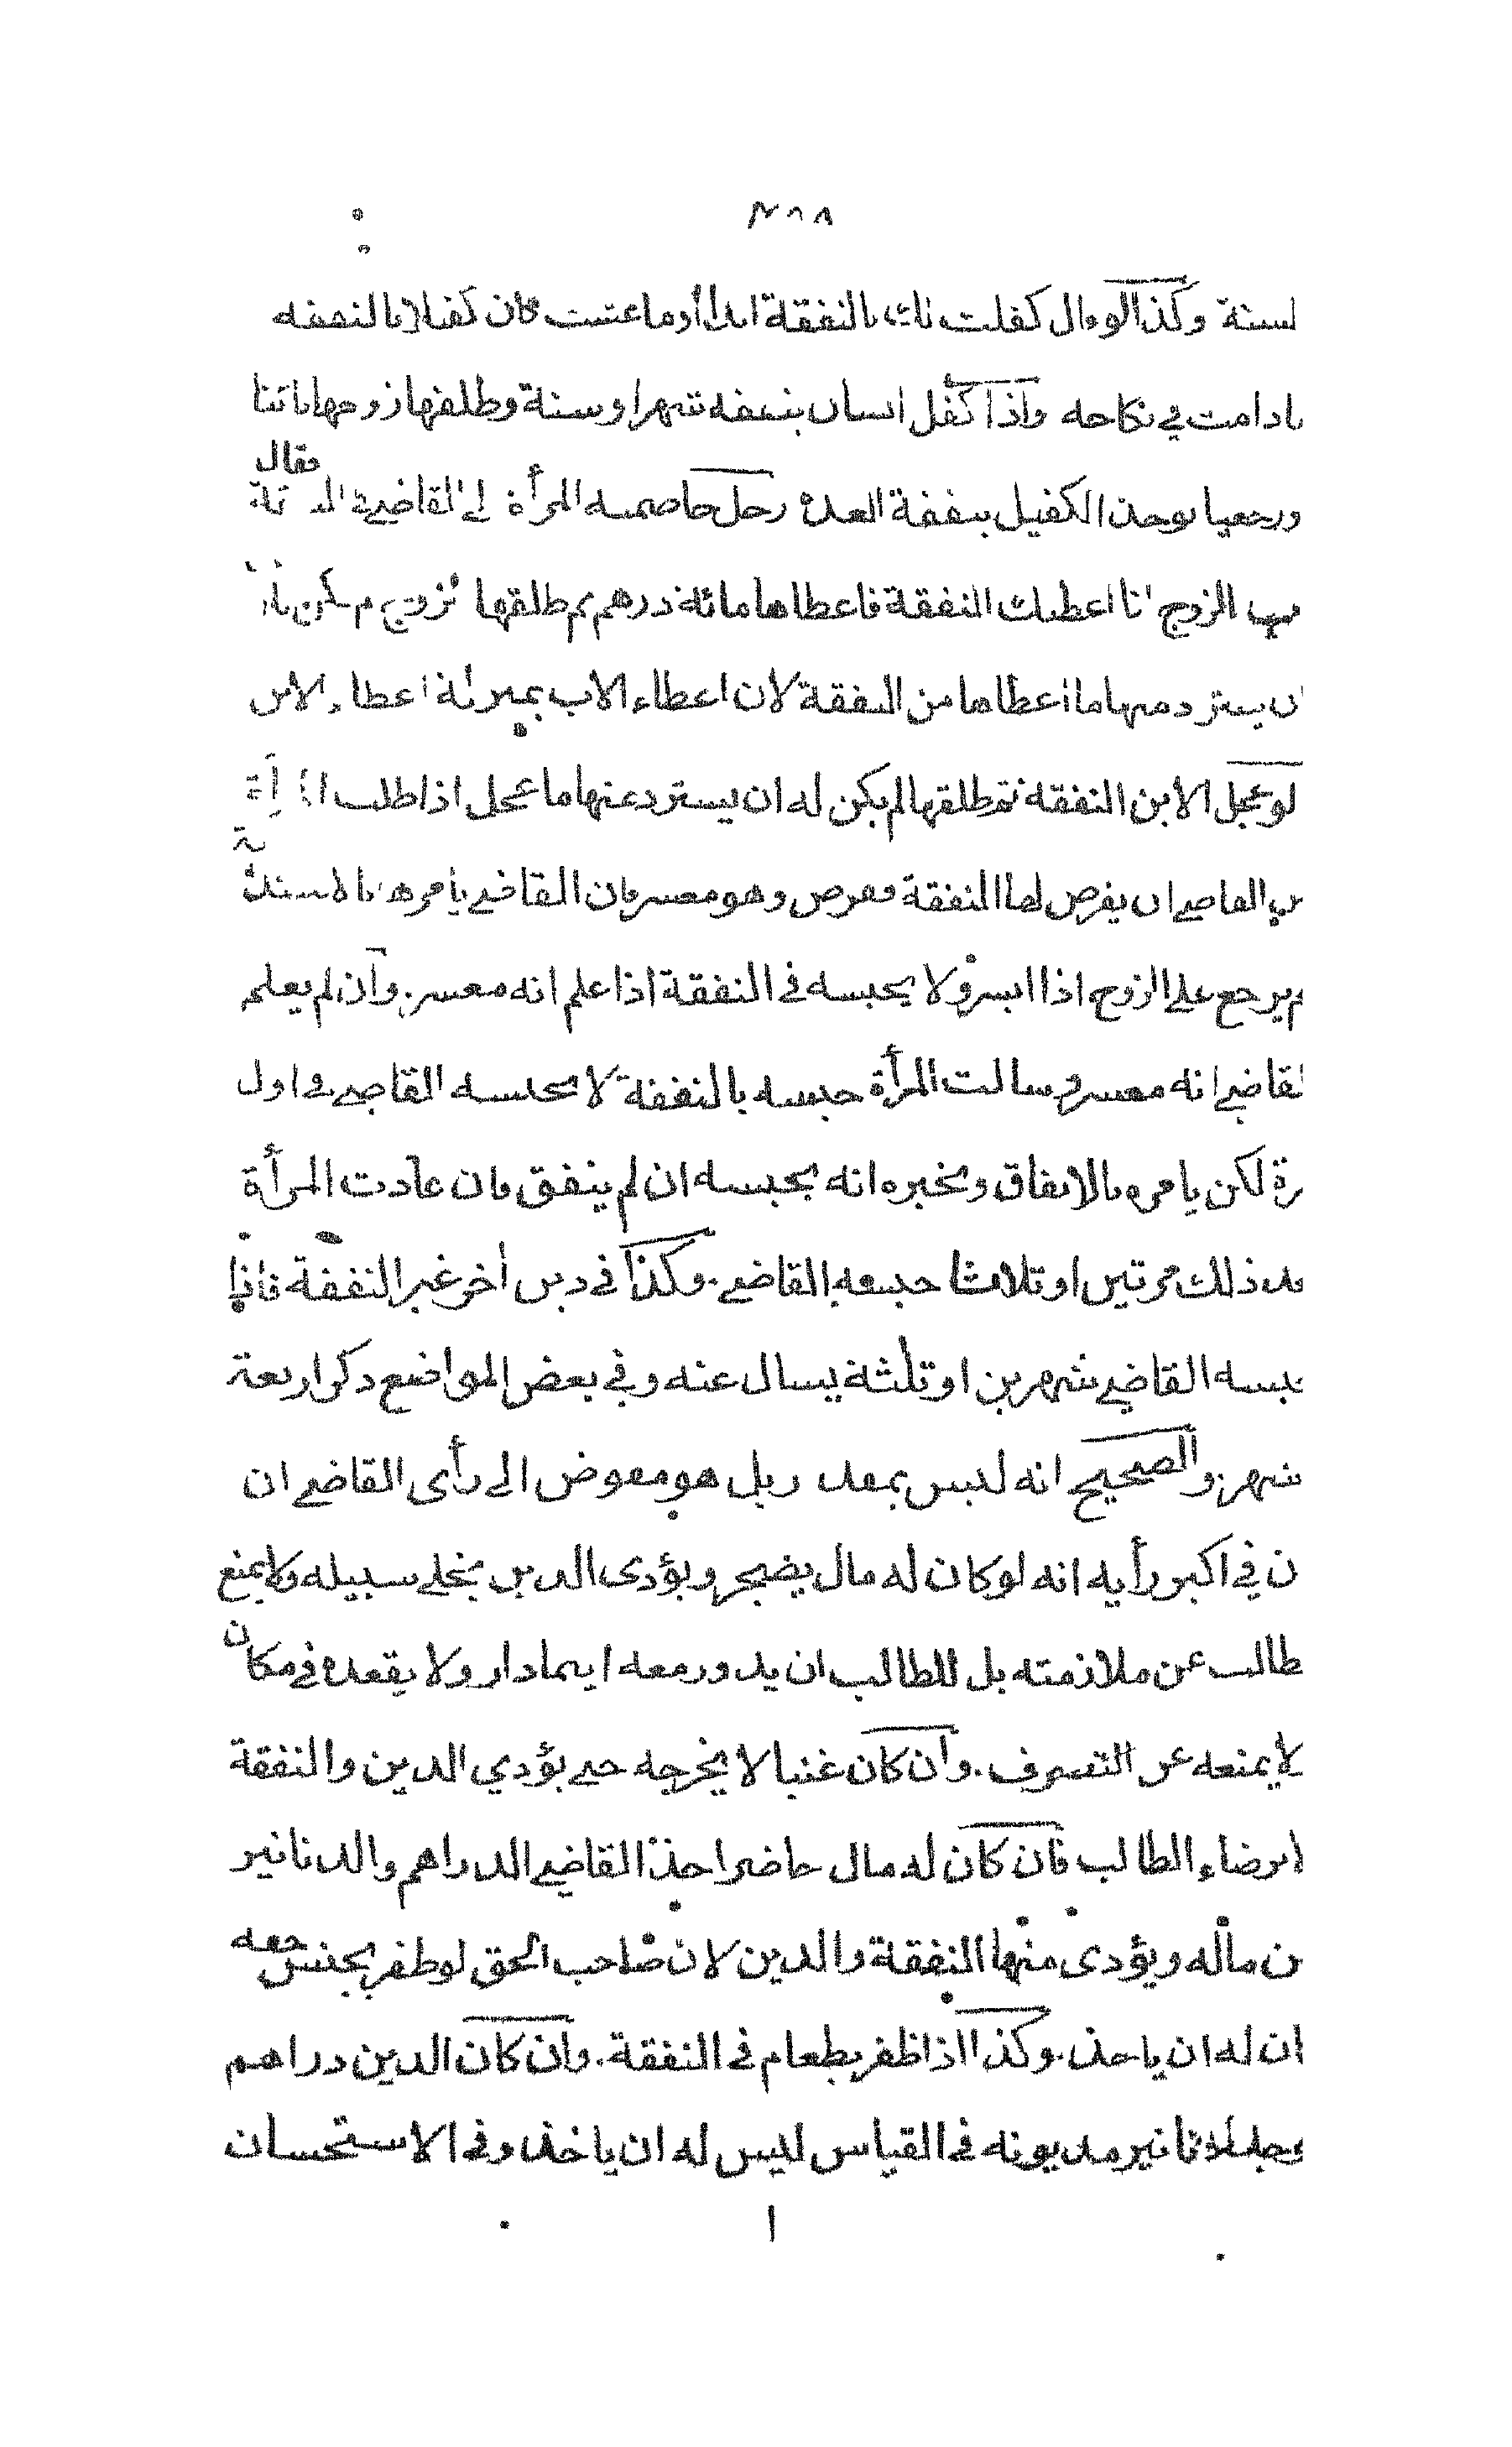 ٣٨٨
لسنة وكذا لو قال كفلت لك بالنفقة ابدا أو ما عشت كان كفيلا بالنفقة
ما دامت في نكاحه واذا كفل انسان بنفقه شهرا وسنة وطلقها زوجها بائنا
ورجعيا يوخذ الكفيل بنفقة العدة رجل خاصمته المرأة الى القاضي في النفقة فقال
اب الزوج انا اعطيك النفقة فاعطاها مائة درهم ثم طلقها الزوج لم يكن للاب
ان يسترد منها ما اعطاها من النفقة لان اعطاء الاب بمنزلة اعطاء الابن
لو عجل الابن النفقة ثم طلقها لم يكن له ان يسترد عنها ما عجل اذا طلبت المرأة
من القاضي ان يفرض لها النفقة ففرض وهو معسر فان القاضي يأمرها بالاستدانة
ثم يرجع على الزوج اذا ايسر ولا يحبسه في النفقة اذا علم انه معسر. وان لم يعلم
لقاضي انه معسر وسالت المرأة حبسه بالنفقة لا يحبسه القاضي في اول
مرة لكن يامره بالانفاق ويخبره انه يحبسه ان لم ينفق فان عادت المرأة
بعد ذلك مرتين او ثلاثا حبسه القاضي. وكذا في دين اخر غير النفقة فاذا
حبسه القاضي شهرين او ثلثة يسال عنه وفي بعض المواضع ذكر اربعة
شهر. والصحيح انه ليس بمقدر بل هو مفوض الى رأى القاضي ان
ن في اكبر رأيه انه لو كان له مال يضجر ويؤدى الدين يخلى سبيله ولا يمنع
طالب عن ملازمته بل للطالب ان يدور معه اينما دار ولا يقعده في مكان
لا يمنعه عن التصرف. وان كان غنيا لا يخرجه حتى يؤدي الدين والنفقة
لا برضاء الطالب فان كان له مال حاضر اخذ القاضي الدراهم والدنانير
من ماله ويؤدى منها النفقة والدين لان صاحب الحق لو ظفر بجنس حقه
كان له ان ياخذ. وكذا اذا ظفر بطعام في النفقة. وان كان الدين دراهم
فوجد دنانير مديونه في القياس ليس له ان ياخذ وفي الاستحسان